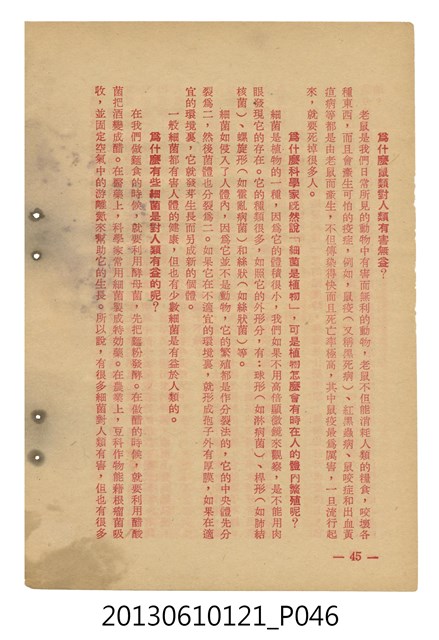 為什麼鼠類對人類有害無益？
老鼠是我們日常所見的動物中有害而無利的動物，老鼠不但能消耗人類的糧食，咬壞各
種東西，而且會產生可怕的疫症，例如，鼠疫（又稱黑死病）、紅黑蟲病、鼠咬症和出血黃
疸病等都是由老鼠而產生，不但傳染得快而且死亡率極高，其中鼠疫最為厲害，一旦流行起
來，就要死掉很多人。
為什麼科學家既然說「細菌是植物」，可是植物怎麼會有時在人的體內繁殖呢？
細菌是植物的一種，因為它的體積很小，我們如果不用高倍顯微鏡來觀察，是不能用肉
眼發現它的存在。它的種類很多，如照它的外形分，有：球形（如淋病菌）、桿形（如肺結
核菌）、螺旋形（如霍亂病菌）和絲狀（如絲狀菌）等。
細菌如侵入了人體內，因為它並不是動物，它的繁殖都是作分裂法的，它的中央體先分
裂為二，然後菌體也分裂為二。如果它在不適宜的環境裏，就形成孢子外有厚膜，如果在適
宜的環境裏，它就發芽生長而另成新的個體。
一般細菌都有害人體的健康，但也有少數細菌是有益於人類的。
為什麼有些細菌是對人類有益的呢？
在我們做麵食的時候，就要利用酵母菌，先把麵粉發酵。在做醋的時候，就要利用醋酸
菌把酒變成醋。在醫藥上，科學家常用細菌製成特效藥。在農業上，豆科作物能藉根瘤菌吸
收，並固定空氣中的游離氮來幫助它的生長。所以說，有很多細菌對人類有害，但也有很多
— 45 —
20130610121_P046